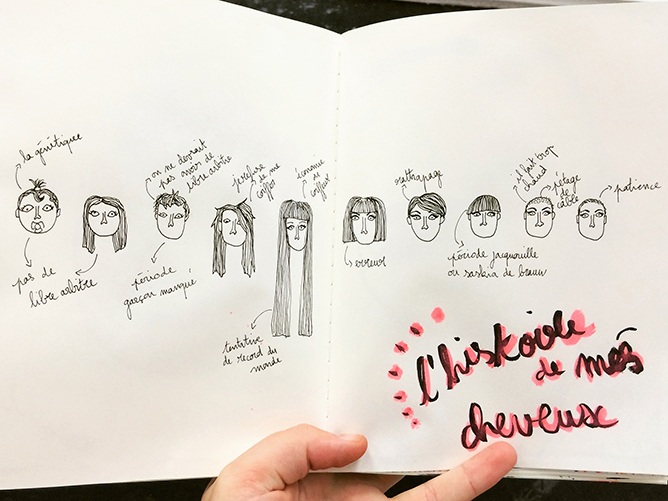 la génétique
pas de
libre arbitre
on ne devrait
pas avoir de
libre arbitre
période
garçon manqué
je refuse
de me
coiffer
économie
de
coiffeur
tentative
de record du
monde
erreur
rattrapage
période jacquouille
ou saskia de brauw
il fait trop
chaud
pétage
de
câble
patience
l'histoire
de mes
cheveux